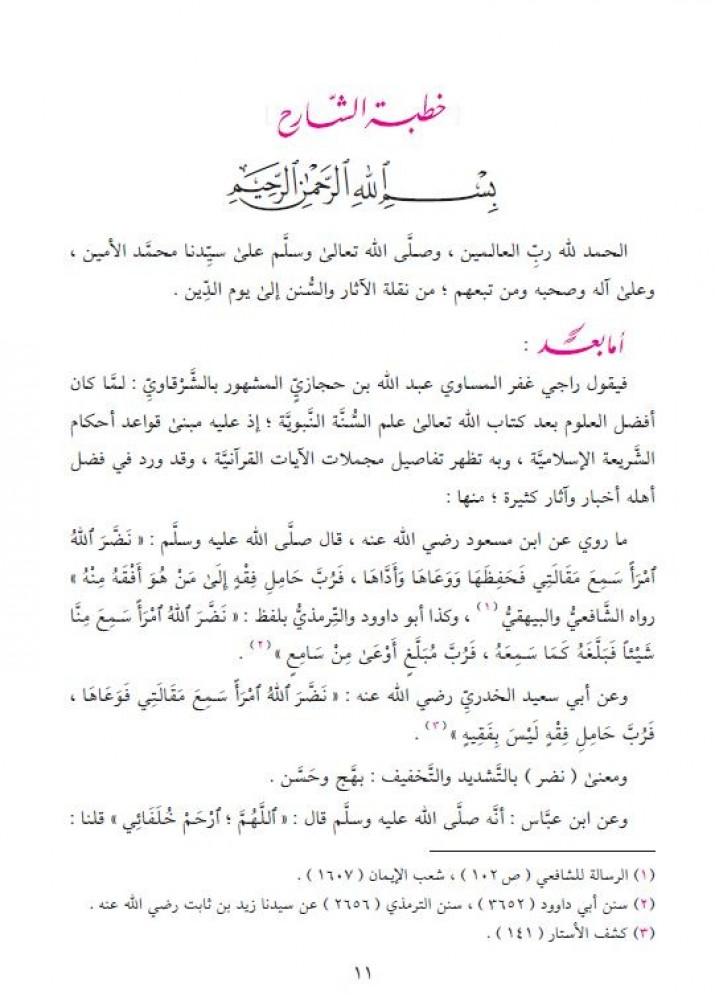 خطبة الشّارح
بِسْمِ ٱللهِ ٱلرَّحْمٰنِ ٱلرَّحِيْمِ
الحمد لله ربِّ العالمين ، وصلَّى الله تعالىٰ وسلَّم علىٰ سيِّدنا محمَّد الأمين ،
وعلىٰ آله وصحبه ومن تبعهم ؛ من نقلة الآثار والسُّنن إلىٰ يوم الدِّين .
أما بعد :
فيقول راجي غفر المساوي عبد الله بن حجازيٍّ المشهور بالشَّرْقاويِّ : لمَّا كان
أفضل العلوم بعد كتاب الله تعالىٰ علم السُّنَّة النَّبويَّة ؛ إذ عليه مبنىٰ قواعد أحكام
الشَّريعة الإسلاميَّة ، وبه تظهر تفاصيل مجملات الآيات القرآنيَّة ، وقد ورد في فضل
أهله أخبار وآثار كثيرة ؛ منها :
ما روي عن ابن مسعود رضي الله عنه ، قال صلَّى الله عليه وسلَّم : « نَضَّرَ ٱللهُ
ٱمْرَأً سَمِعَ مَقَالَتِي فَحَفِظَهَا وَوَعَاهَا وَأَدَّاهَا ، فَرُبَّ حَامِلِ فِقْهٍ إِلَىٰ مَنْ هُوَ أَفْقَهُ مِنْهُ »
رواه الشَّافعيُّ والبيهقيُّ (١) ، وكذا أبو داوود والتِّرمذيُّ بلفظ : « نَضَّرَ ٱللهُ ٱمْرَأً سَمِعَ مِنَّا
شَيْئاً فَبَلَّغَهُ كَمَا سَمِعَهُ ، فَرُبَّ مُبَلَّغٍ أَوْعَىٰ مِنْ سَامِعٍ » (٢) .
وعن أبي سعيد الخدريِّ رضي الله عنه : « نَضَّرَ ٱللهُ ٱمْرَأً سَمِعَ مَقَالَتِي فَوَعَاهَا ،
فَرُبَّ حَامِلِ فِقْهٍ لَيْسَ بِفَقِيهٍ » (٣) .
ومعنىٰ ( نضر ) بالتَّشديد والتَّخفيف : بهَّج وحَسَّن .
وعن ابن عبَّاس : أنَّه صلَّى الله عليه وسلم قال : « اللَّهُمَّ ؛ ٱرْحَمْ خُلَفَائِي » قلنا :
(١) الرسالة للشافعي ( ص ١٠٢ ) ، شعب الإيمان ( ١٦٠٧ ) .
(٢) سنن أبي داوود ( ٣٦٥٢ ) ، سنن الترمذي ( ٢٦٥٦ ) عن سيدنا زيد بن ثابت رضي الله عنه .
(٣) كشف الأستار ( ١٤١ ) .
١١